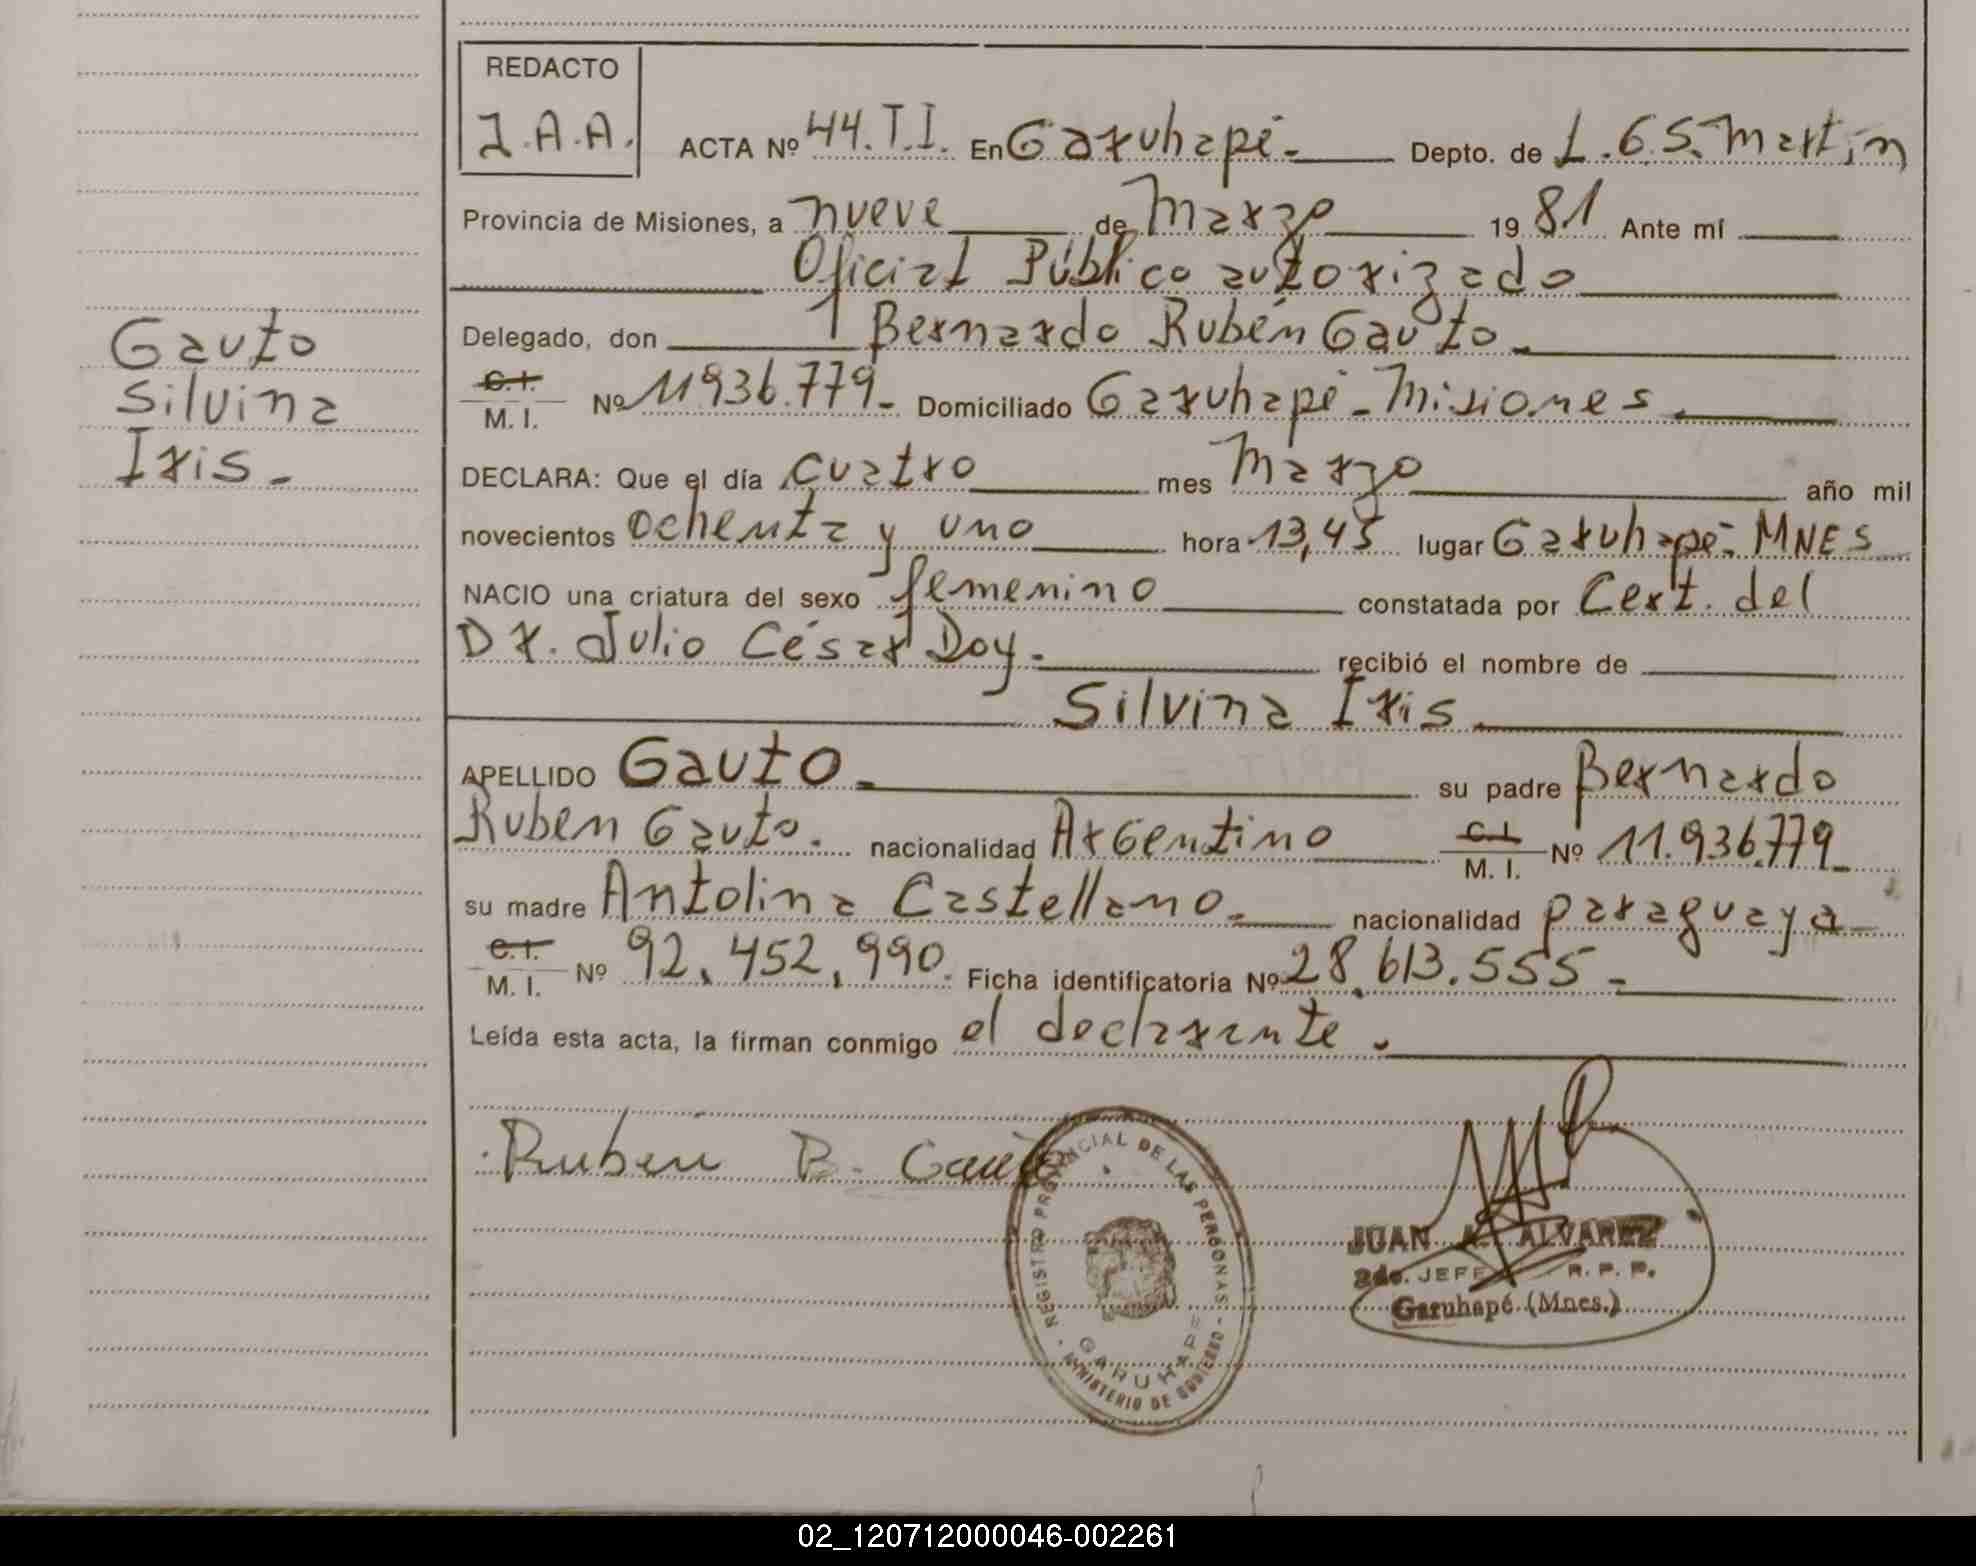 REDACTO
J.A.A. ACTA Nº 44.T.I. En Garuhapé. Depto. de L.G.S. Martín
Provincia de Misiones, a nueve de Marzo 1981 Ante mí
Oficial Público autorizado
Delegado, don Bernardo Rubén Gauto.
C.I. M.I. Nº 11936.779. Domiciliado Garuhapé-Misiones.
DECLARA: Que el día cuatro mes Marzo año mil
novecientos ochenta y uno hora 13,45 lugar Garuhapé-MNES
NACIO una criatura del sexo femenino constatada por Cert. del
Dr. Julio César Doy. recibió el nombre de
Silvina Iris
APELLIDO Gauto. su padre Bernardo
Ruben Gauto. nacionalidad Argentino C.I. M.I. Nº 11.936.779
su madre Antolina Castellano. nacionalidad paraguaya
C.I. M.I. Nº 92.452.990. Ficha identificatoria Nº 28.613.555.
Leída esta acta, la firman conmigo el declarante.
Gauto
Silvina
Iris.
Ruben B. Gauto
REGISTRO PROVINCIAL DE LAS PERSONAS
GARUHAPE
MINISTERIO DE GOBIERNO
JUAN A. ALVAREZ
2do. JEFE R.P.P.
Garuhapé (Mnes.)
02_120712000046-002261